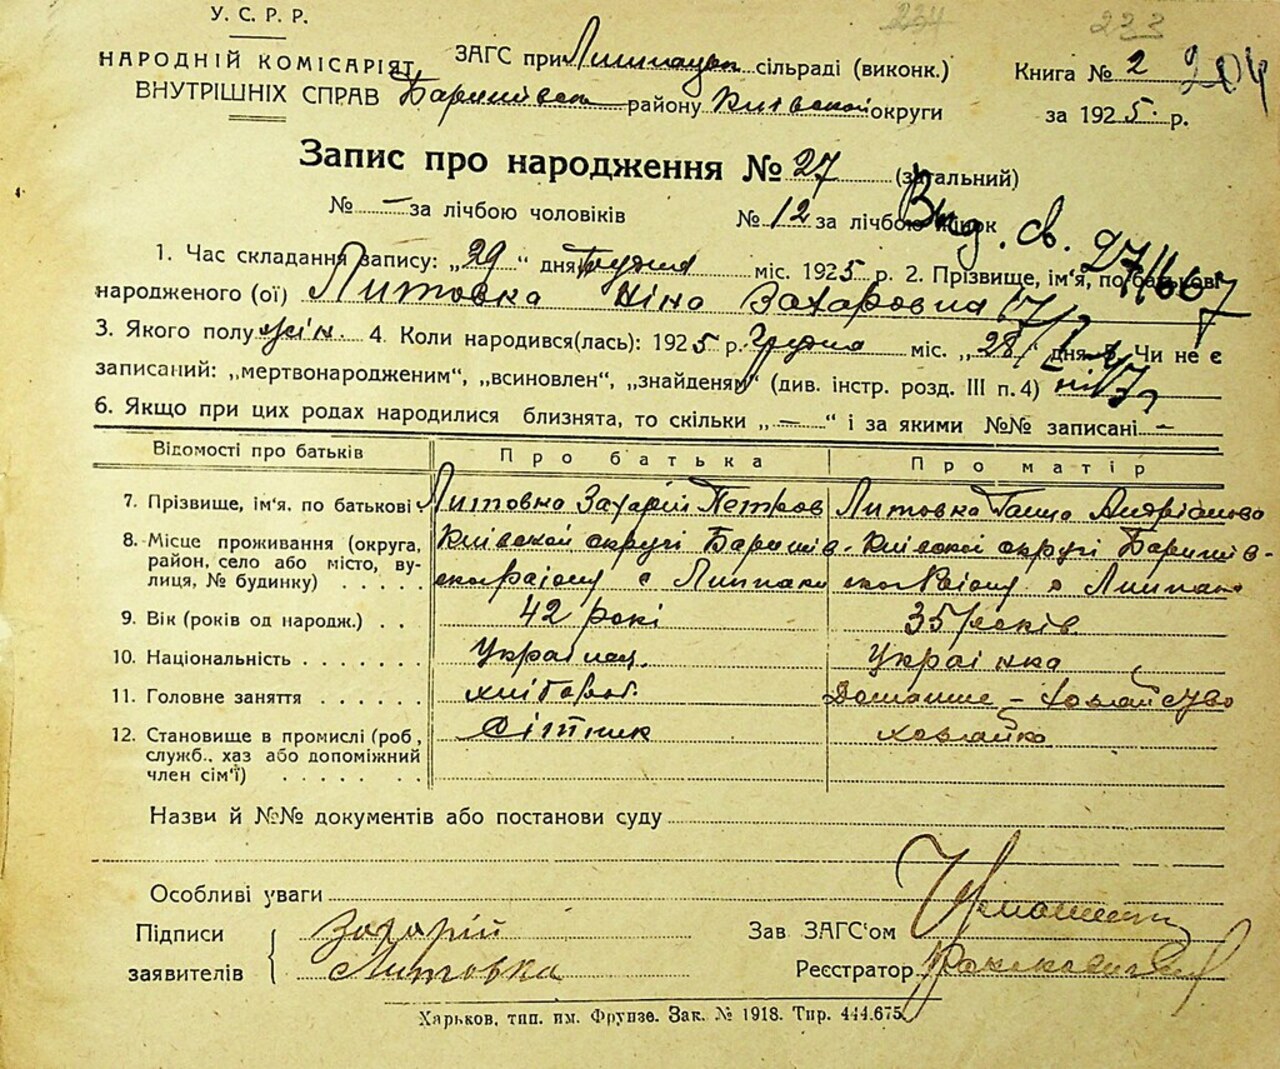 У. С. Р. Р.
234 222
НАРОДНІЙ КОМІСАРІЯТ
ВНУТРІШНІХ СПРАВ
ЗАГС при сільраді (виконк.)
району Київської округи
Книга № 2 204
за 1925 р.
Запис про народження № 27 (загальний)
№ — за лічбою чоловіків № 12 за лічбою жінок
Вид. св.
1. Час складання запису: „29“ дня Грудня міс. 1925 р. 2. Прізвище, ім'я, по батькові
народженого (ої) Литовка Ніна Захаровна
3. Якого полу жін. 4. Коли народився(лась): 1925 р. Грудня міс. „28“ дня 5. Чи не є
записаний: „мертвонародженим“, „всиновлен“, „знайденям“ (див. інстр. розд. III п. 4) ні
6. Якщо при цих родах народилися близнята, то скільки „—“ і за якими №№ записані —
Відомості про батьків Про батька Про матір
7. Прізвище, ім'я, по батькові Литовка Захарій Петров Литовка Ганна Андріанова
8. Місце проживання (округа, Київскої округі Баришів- Київскої округі Баришів-
район, село або місто, ву- ск района с Липняки ск района с
лиця, № будинку)
9. Вік (років од народж.) 42 рокі 35 років
10. Національність Українец. Українка
11. Головне заняття хлібороб. Домашне-хозяйство
12. Становище в промислі (роб, хозяйка
служб., хаз або допоміжний
член сім'ї)
Назви й №№ документів або постанови суду
Особливі уваги
Підписи Захарій
заявителів Литовка
Зав ЗАГС'ом
Реєстратор
Харьков, тип. им. Фрунзе. Зак. № 1918. Тир. 444.675.